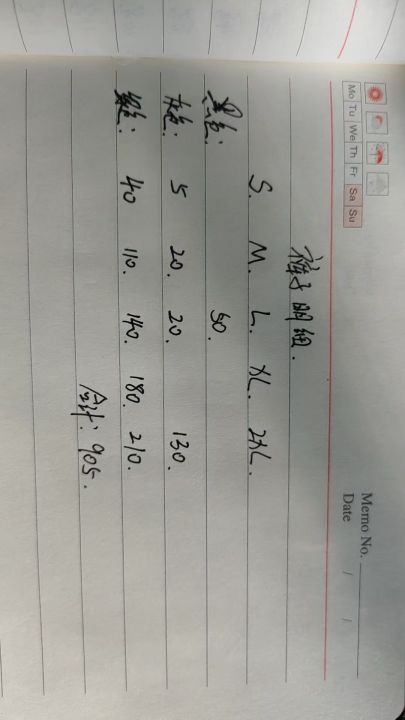 Memo No.
Mo Tu We Th Fr Sa Su
Date / /
裤子明细.
S. M. L. XL. 2XL.
黑色: 50.
灰色: 5 20. 20. 130.
绿色: 40 110. 140. 180. 210.
合计: 905.